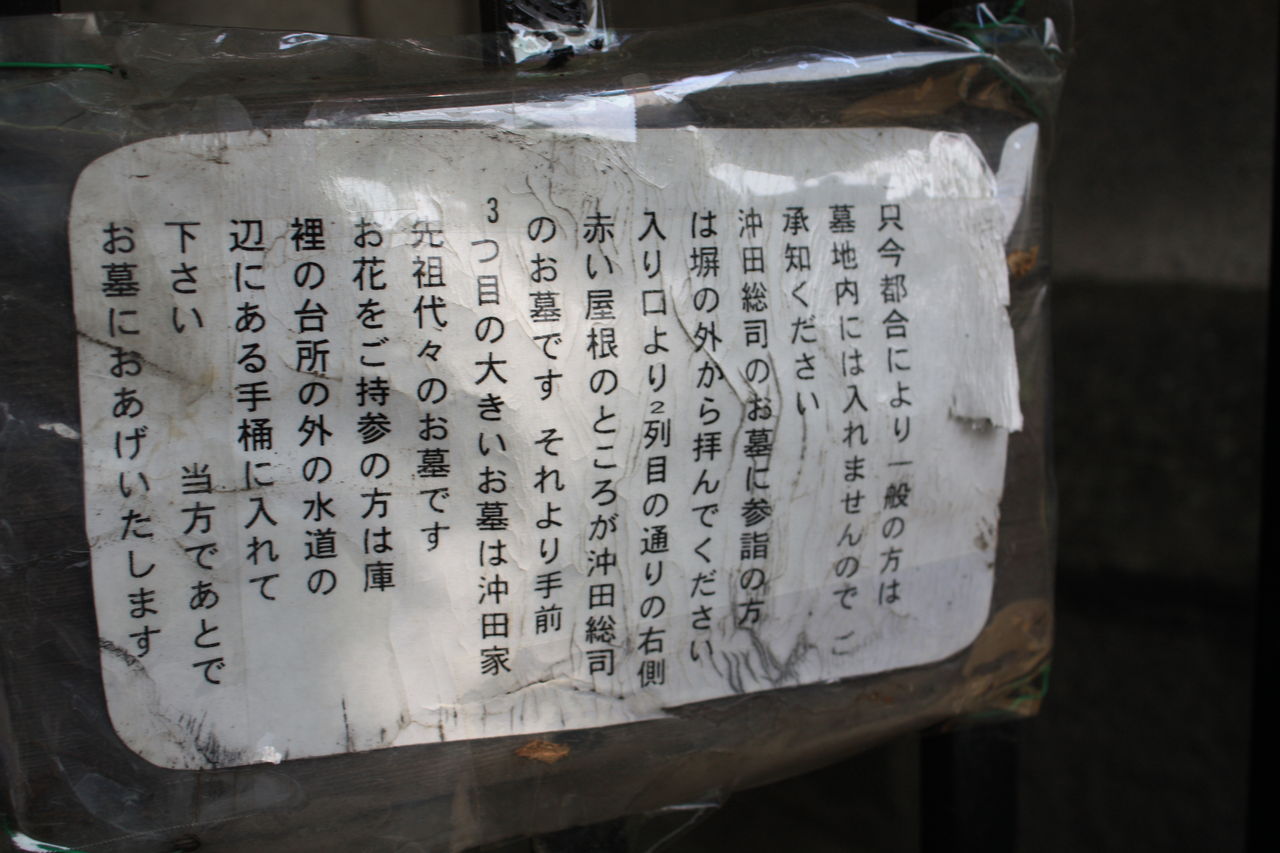 只今都合により一般の方は
墓地内には入れませんので　ご
承知ください
沖田総司のお墓に参詣の方
は塀の外から拝んでください
入り口より2列目の通りの右側
赤い屋根のところが沖田総司
のお墓です　それより手前
3つ目の大きいお墓は沖田家
先祖代々のお墓です
お花をご持参の方は庫
裡の台所の外の水道の
辺にある手桶に入れて
下さい　　　当方であとで
お墓におあげいたします